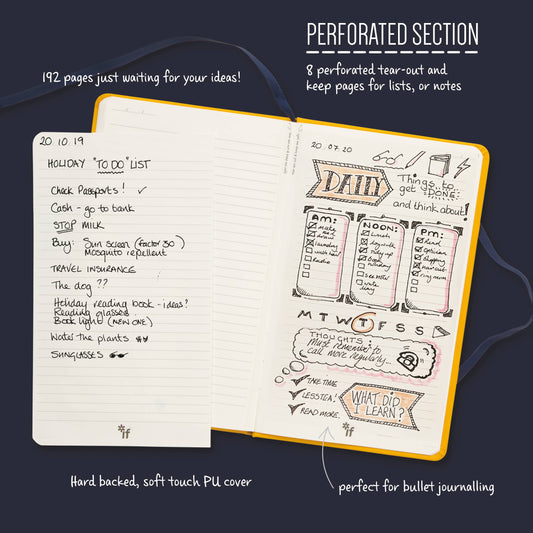 PERFORATED SECTION
8 perforated tear-out and
keep pages for lists, or notes
192 pages just waiting for your ideas!
20.10.19
HOLIDAY "TO DO" LIST
Check Passports!
Cash - go to bank
STOP MILK
Buy: Sun screen (factor 30)
Mosquito repellent
TRAVEL INSURANCE
The dog ??
Holiday reading book - ideas?
Reading glasses
Book light (NEW ONE)
Water the plants
SUNGLASSES
if
20.07.20
DAILY
Things to
get DONE
and think about!
AM:
make
bed
laundry
radio
NOON:
lunch
dog walk
tidy up
book
holiday
see Notes
write
diary
PM:
read
optician
shopping
hair cut
ring mum
M T W T F S S
THOUGHTS:
Must remember to
call more regularly...
TAKE TIME
LESS TEA!
READ MORE.
WHAT DID
I LEARN?
if
Hard backed, soft touch PU cover
perfect for bullet journalling